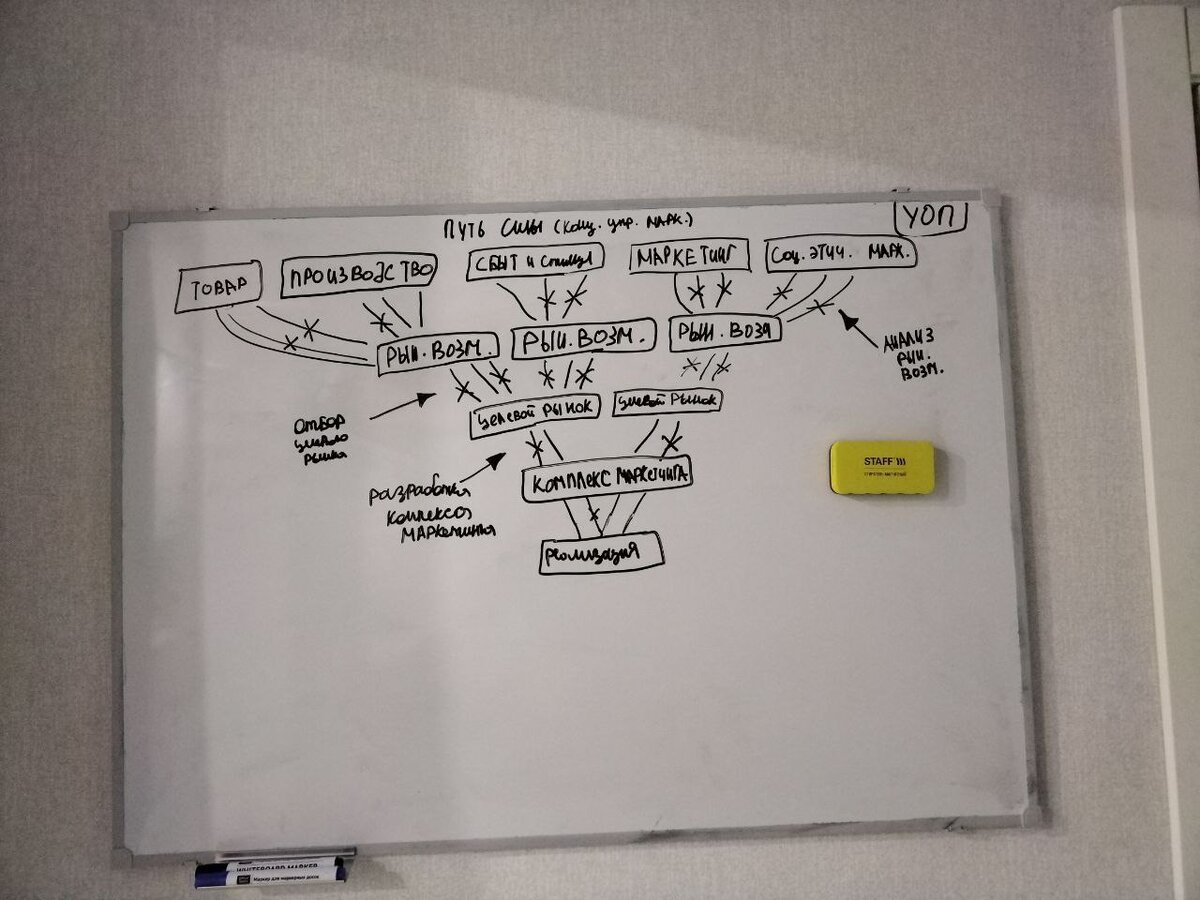 ПУТЬ СИЛЫ (конц. упр. МАРК.)
УОП
ТОВАР
ПРОИЗВОДСТВО
СБЫТ и стимул
МАРКЕТИНГ
Соц. ЭТИЧ. МАРК.
РЫН. ВОЗМ.
РЫН. ВОЗМ.
РЫН. ВОЗМ
АНАЛИЗ
РЫН.
ВОЗМ.
ОТБОР
рынка
ЦЕЛЕВОЙ РЫНОК
целевой РЫНОК
разработка
комплекса
МАРКетинга
КОМПЛЕКС МАРКЕТИНГА
реализация
STAFF
WHITEBOARD MARKER
Маркер для маркерных досок